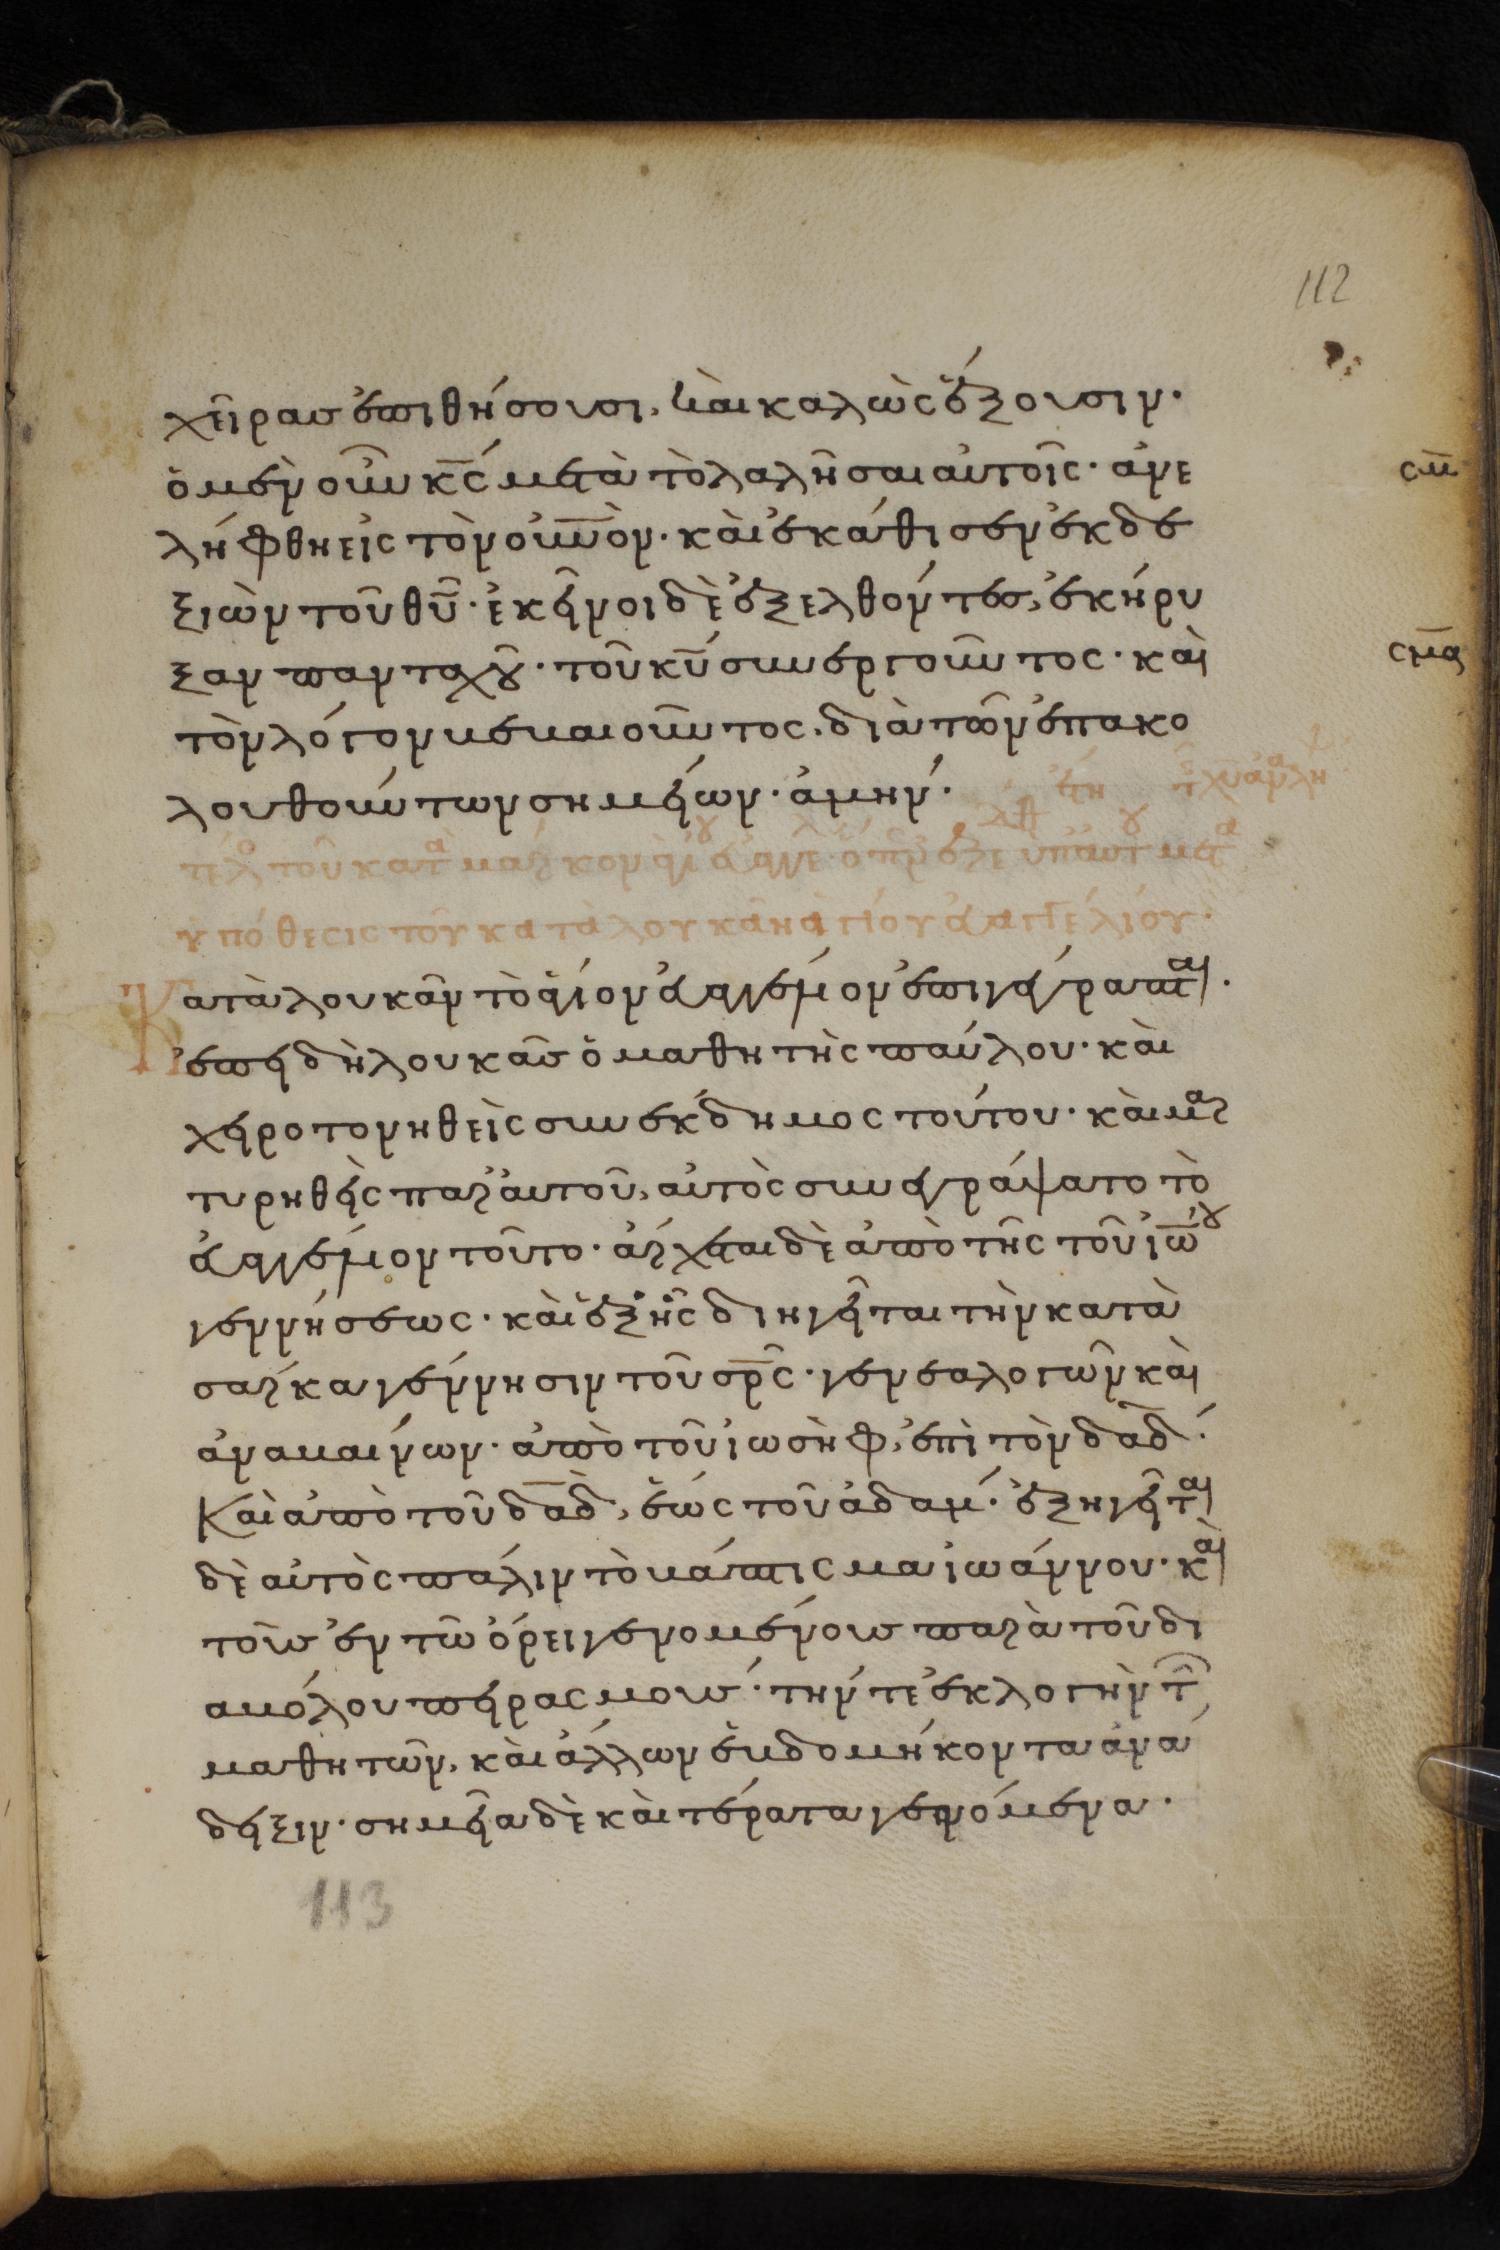 112
χεῖρας ἐπιθήσουσι, καὶ καλῶς ἕξουσιν·
ὁ μὲν οὖν κ̅ς̅ μετὰ τὸ λαλῆσαι αὐτοῖς· ἀνε
λήφθη εἰς τὸν οὐ̅ν̅ο̅ν· καὶ ἐκάθισεν ἐκ δε
ξιῶν τοῦ θ̅υ̅· ἐκεῖνοι δὲ ἐξελθόντες, ἐκήρυ
ξαν πανταχοῦ· τοῦ κ̅υ̅ συνεργοῦντος· καὶ
τὸν λόγον βεβαιοῦντος, διὰ τῶν ἐπακο
λουθούντων σημείων· ἀμήν·
ὑπόθεσις τοῦ κατὰ λουκᾶν ἁγίου εὐαγγελίου·
Κατὰ λουκᾶν τὸ θεῖον εὐαγγέλιον ἐπιγέγραπται·
ἐπειδὴ λουκᾶς ὁ μαθητὴς παύλου· καὶ
χειροτονηθεὶς συνέκδημος τούτου· καὶ μαρ
τυρηθεὶς παρ' αὐτοῦ, αὐτὸς συνεγράψατο τὸ
εὐαγγέλιον τοῦτο· ἄρχεται δὲ ἀπὸ τῆς τοῦ ἰω̅ου
γεννήσεως· καὶ ἑξῆς διηγεῖται τὴν κατὰ
σάρκα γέννησιν τοῦ σ̅ρ̅ς· γενεαλογῶν καὶ
ἀναβαίνων· ἀπὸ τοῦ ἰωσὴφ, ἐπὶ τὸν δ̅α̅δ̅·
Καὶ ἀπὸ τοῦ δ̅α̅δ̅, ἕως τοῦ ἀδάμ· ἐξηγεῖται
δὲ αὐτὸς πάλιν τὸ βάπτισμα ἰωάννου· καὶ
τοῖς ἐν τῷ ὄρει γενομένοις παρὰ τοῦ δι
αβόλου πειρασμοῖς· τήν τε ἐκλογὴν τῶν
μαθητῶν, καὶ ἄλλων ἑβδομήκοντα ἀνά
δειξιν· σημεῖα δὲ καὶ τέρατα γενόμενα·
ς̅μ̅
ς̅μ̅α̅
113